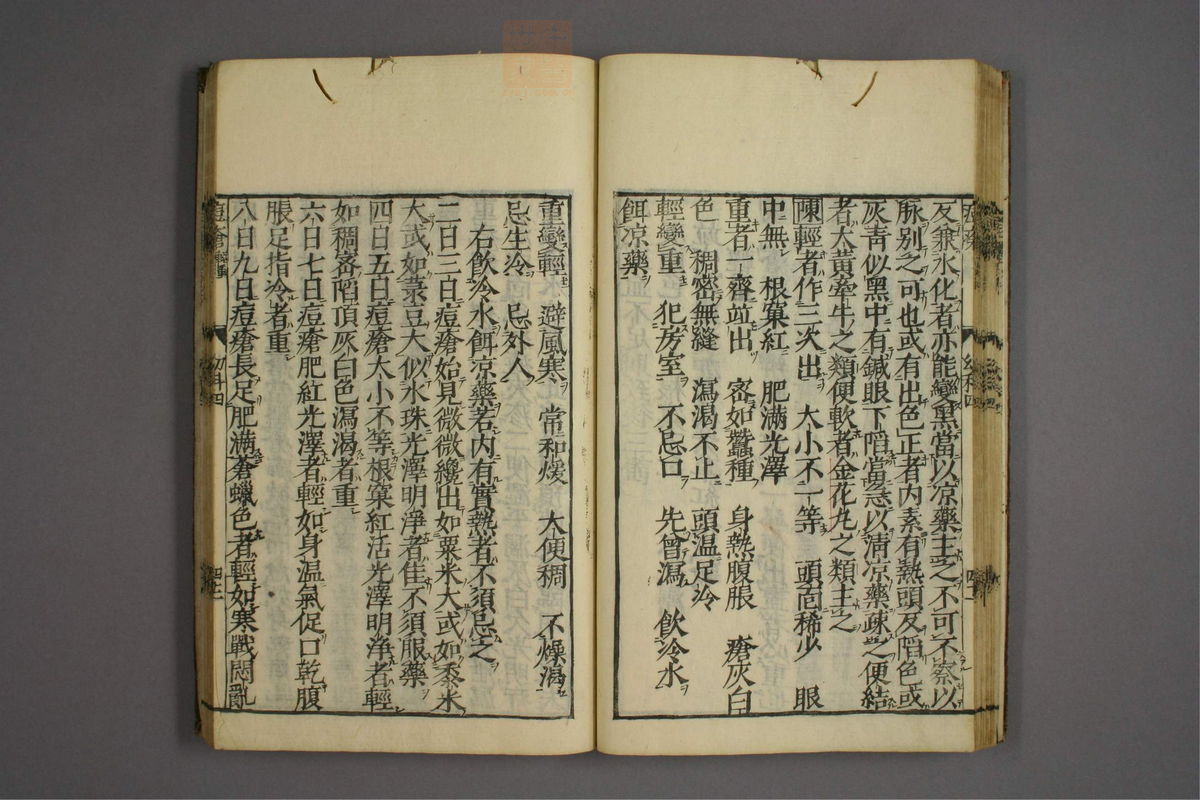 反兼水化者亦能變黑當以凉藥主之不可不察以
脉别之可也或有出色正者内素有熱頭及陷色或
灰青似黑中有鍼眼下陷當急以清凉藥疎之便結
者大黃牽牛之類便軟者金花丸之類主之
陳輕者作三次出 大小不一等 頭面稀少 眼
中無 根窠紅 肥滿光澤
重者一齊竝出 密如蠶種 身熱腹脹 瘡灰白
色 稠密無縫 瀉渴不止 頭溫足冷
輕變重 犯房室 不忌口 先曾瀉 飲冷水
餌凉藥
重變輕 避風寒 常和煖 大便稠 不燥渴
忌生冷 忌外人
右飲冷水餌凉藥若内有實熱者不須忌之
二日三日痘瘡始見微微纔出如粟米大或如黍米
大或如菉豆大似水珠光澤明淨者佳不須服藥
四日五日痘瘡大小不等根窠紅活光澤明淨者輕
如稠密陷頂灰白色瀉渴者重
六日七日痘瘡肥紅光澤者輕如身溫氣促口乾腹
脹足指冷者重
八日九日痘瘡長足肥滿蒼蠟色者輕如寒戰悶亂
痘瘡 幼科四